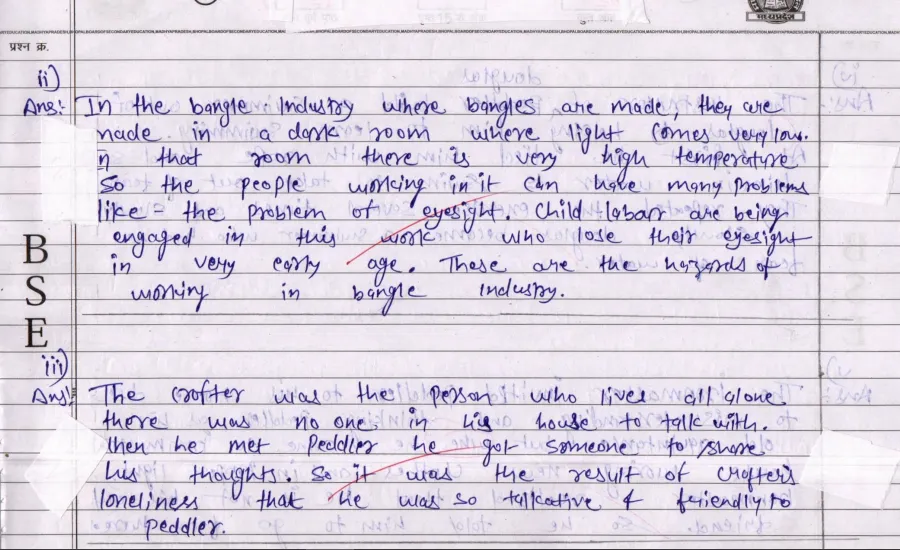 मध्यप्रदेश
प्रश्न क्र.
ii)
Ans:- In the bangle Industry where bangles are made, they are
made in a dark room where light comes very low.
In that room there is very high temperature
So the people working in it can have many problems
like - the problem of eyesight. Child labour are being
engaged in this work who lose their eyesight
in very early age. These are the hazards of
working in bangle Industry.
B
S
E
iii)
Ans:- The crofter was the person who lives all alone
there was no one in his house to talk with.
then he met Peddler he got someone to share
his thoughts. So it was the result of crofter's
loneliness that he was so talkative & friendly to
Peddler.